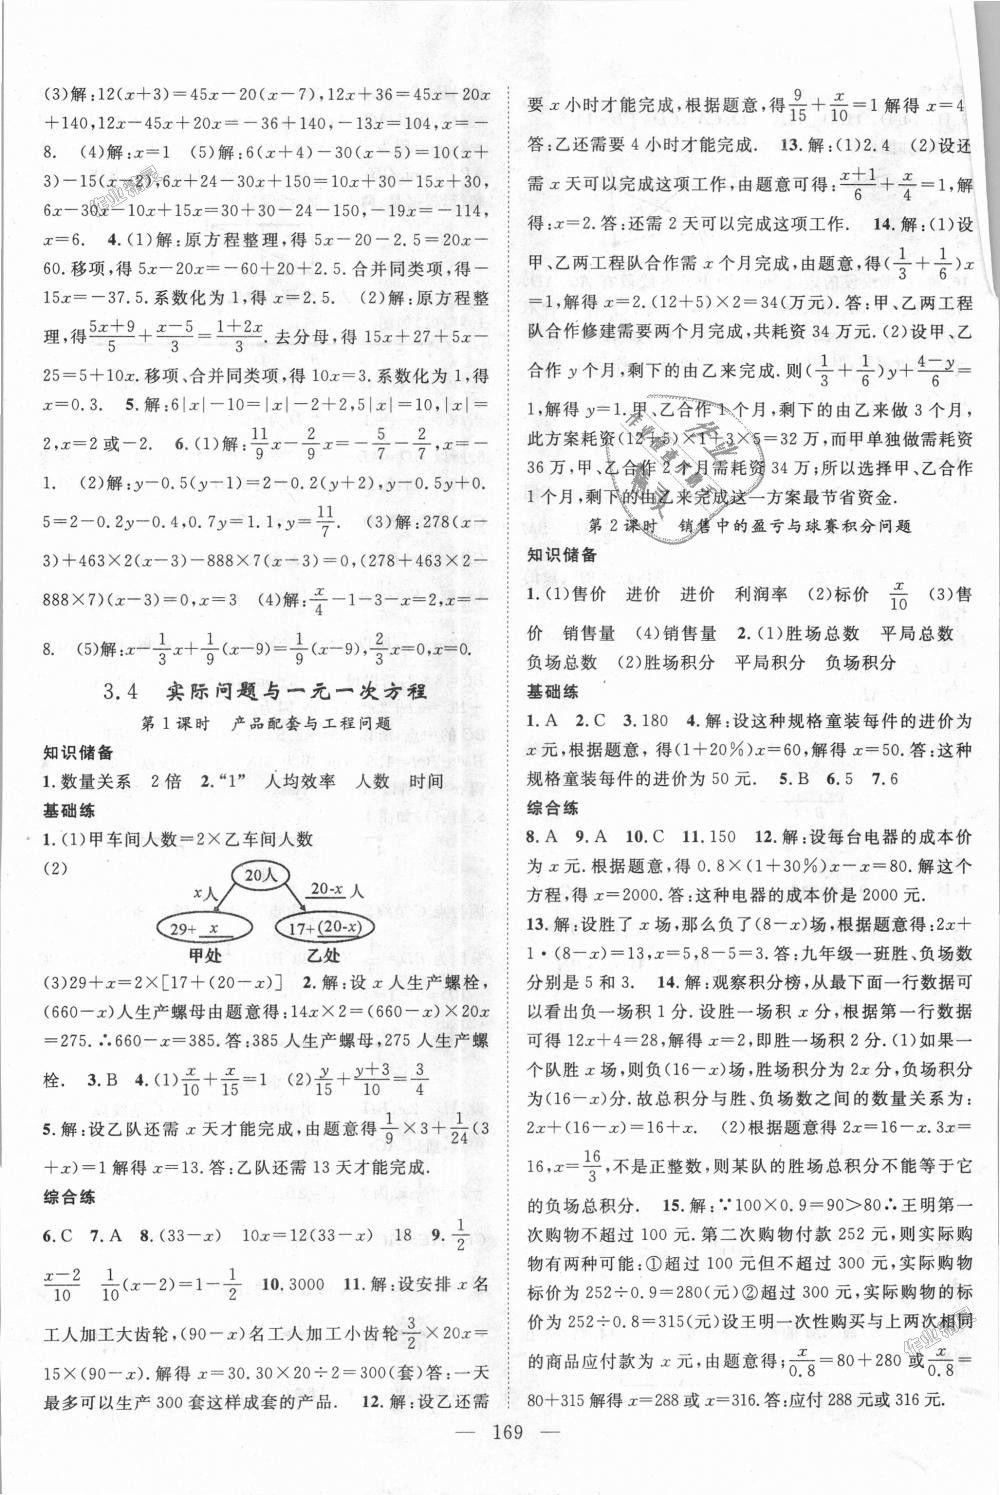 (3)解:12(x+3)=45x-20(x-7),12x+36=45x-20x
+140,12x-45x+20x=-36+140,-13x=104,x=-
8. (4)解:x=1 (5)解:6(x+4)-30(x-5)=10(x+3)
-15(x-2),6x+24-30x+150=10x+30-15x+30,
6x-30x-10x+15x=30+30-24-150,-19x=-114,
x=6. 4.(1)解:原方程整理,得 5x-20-2.5=20x-
60.移项,得 5x-20x=-60+20+2.5.合并同类项,得-
15x=-37.5.系数化为1,得 x=2.5. (2)解:原方程整
理,得(5x+9)/5+(x-5)/3=(1+2x)/3.去分母,得 15x+27+5x-
25=5+10x.移项、合并同类项,得 10x=3.系数化为1,得
x=0.3. 5.解:6|x|-10=|x|-2+2,5|x|=10,|x|=
2,x=2或-2. 6.(1)解:11/9x-2/9x=-5/7-2/7,x=-
1. (2)解:y-0.5(y-1)=2-0.2(y+2),y-0.5y+0.
5=2-0.2y-0.4,0.7y=1.1,y=11/7. (3)解:278(x-
3)+463×2(x-3)-888×7(x-3)=0,(278+463×2-
888×7)(x-3)=0,x=3 (4)解:x/4-1-3-x=2,x=-
8. (5)解:x-1/3x+1/9(x-9)=1/9(x-9),2/3x=0,x=0.
3.4 实际问题与一元一次方程
第1课时 产品配套与工程问题
知识储备
1.数量关系 2倍 2.“1” 人均效率 人数 时间
基础练
1.(1)甲车间人数=2×乙车间人数
(2)
20人
x人 20-x 人
29+ x 17+(20-x)
甲处 乙处
(3)29+x=2×[17+(20-x)] 2.解:设 x 人生产螺栓,
(660-x)人生产螺母由题意得:14x×2=(660-x)×20x
=275.∴660-x=385.答:385人生产螺母,275人生产螺
栓. 3.B 4.(1)x/10+x/15=1 (2)y/15+(y+3)/10=3/4
5.解:设乙队还需 x 天才能完成,由题意得1/9×3+1/24(3
+x)=1解得 x=13.答:乙队还需 13 天才能完成.
综合练
6.C 7.A 8.(33-x) 10x=12(33-x) 18 9.1/2
(x-2)/10 1/10(x-2)=1-1/2 10.3000 11.解:设安排 x 名
工人加工大齿轮,(90-x)名工人加工小齿轮3/2×20x=
15×(90-x).解得 x=30.30×20÷2=300(套)答:一天
最多可以生产 300 套这样成套的产品. 12.解:设乙还需
要 x 小时才能完成,根据题意,得9/15+x/10=1解得 x=4
答:乙还需要 4 小时才能完成. 13.解:(1)2.4 (2)设还
需 x 天可以完成这项工作,由题意可得:(x+1)/6+x/4=1,解
得:x=2.答:还需 2 天可以完成这项工作. 14.解:(1)设
甲、乙两工程队合作需 x 个月完成,由题意,得(1/3+1/6)x
=1,解得 x=2.(12+5)×2=34(万元).答:甲、乙两工程
队合作修建需要两个月完成,共耗资 34 万元.(2)设甲、乙
合作 y 个月,剩下的由乙来完成.则(1/3+1/6)y+(4-y)/6=
1,解得 y=1.甲、乙合作 1 个月,剩下的由乙来做 3 个月,
此方案耗资(12+5)×1+3×5=32万,而甲单独做需耗资
36 万,甲、乙合作 2 个月需耗资 34 万;所以选择甲、乙合作
1 个月,剩下的由乙来完成这一方案最节省资金.
第2课时 销售中的盈亏与球赛积分问题
知识储备
1.(1)售价 进价 进价 利润率 (2)标价 x/10 (3)售
价 销售量 (4)销售量 2.(1)胜场总数 平局总数
负场总数 (2)胜场积分 平局积分 负场积分
基础练
1.A 2.C 3.180 4.解:设这种规格童装每件的进价为
x 元.根据题意,得(1+20%)x=60,解得 x=50.答:这种
规格童装每件的进价为 50 元. 5.B 6.5 7.6
综合练
8.A 9.A 10.C 11.150 12.解:设每台电器的成本价
为 x 元.根据题意,得 0.8×(1+30%)x-x=80.解这个
方程,得 x=2000.答:这种电器的成本价是 2000 元.
13.解:设胜了 x 场,那么负了(8-x)场,根据题意得:2x+
1·(8-x)=13,x=5,8-5=3.答:九年级一班胜、负场数
分别是 5 和 3. 14.解:观察积分榜,从最下面一行数据可
以看出负一场积 1 分.设胜一场积 x 分,根据第一行数据
得:12x+4=28.解得:x=2,即胜一场积 2 分.(1)如果一
个队胜 x 场,则负(16-x)场,胜场积分为 2x 分,负场积分
为(16-x)分.故总积分与胜、负场数之间的数量关系为:
2x+(16-x)=16+x. (2)根据题意得 2x=16-x.3x=
16,x=16/3,不是正整数,则某队的胜场总积分不能等于它
的负场总积分. 15.解:∵100×0.9=90>80∴王明第一
次购物不超过 100 元.第二次购物付款 252 元,则实际购
物有两种可能:①超过 100 元,不超过 300 元,实际购物的
标价为 252÷0.9=280(元)②超过 300 元,实际购物标价
为 252÷0.8=315(元)设王明一次性购买与上两次相同
的商品应付款为 x 元,则根据题意得:x/0.8=80+280或x/0.8=
80+315解得 x=288或 x=316.答:应付 288元或 316 元.
— 169 —
作业精灵
作业精灵
作业
作业检查小助手
精灵